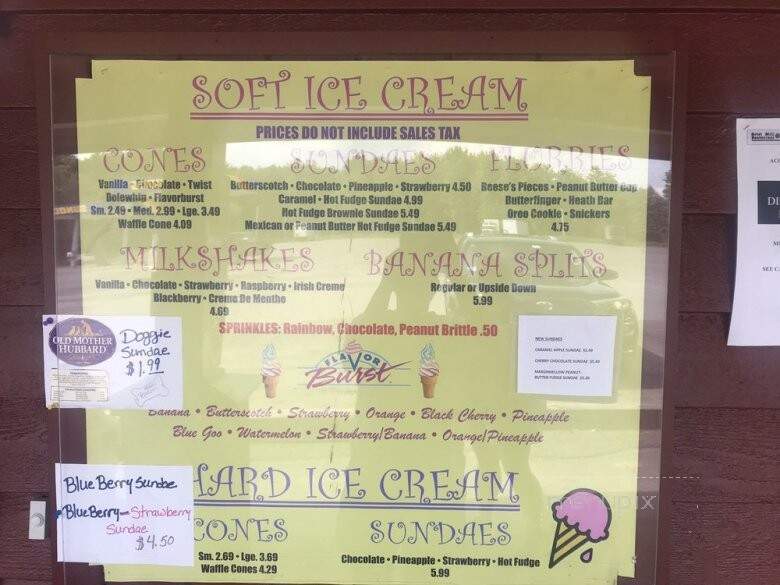 SOFT ICE CREAM
PRICES DO NOT INCLUDE SALES TAX
CONES
Vanilla • Chocolate • Twist
Dolewhip • Flavorburst
Sm. 2.49 • Med. 2.99 • Lge. 3.49
Waffle Cone 4.09
SUNDAES
Butterscotch • Chocolate • Pineapple • Strawberry 4.50
Caramel • Hot Fudge Sundae 4.99
Hot Fudge Brownie Sundae 5.49
Mexican or Peanut Butter Hot Fudge Sundae 5.49
FLURRIES
Reese's Pieces • Peanut Butter Cup
Butterfinger • Heath Bar
Oreo Cookie • Snickers
4.75
MILKSHAKES
Vanilla • Chocolate • Strawberry • Raspberry • Irish Creme
Blackberry • Creme De Menthe
4.69
BANANA SPLITS
Regular or Upside Down
5.99
SPRINKLES: Rainbow, Chocolate, Peanut Brittle .50
OLD MOTHER
HUBBARD
Doggie
Sundae
$1.99
FLAVOR
Burst
NEW SUNDAES
CARAMEL APPLE SUNDAE $5.49
CHERRY CHOCOLATE SUNDAE $5.49
MARSHMALLOW PEANUT-
BUTTER FUDGE SUNDAE $5.49
Banana • Butterscotch • Strawberry • Orange • Black Cherry • Pineapple
Blue Goo • Watermelon • Strawberry/Banana • Orange/Pineapple
Blue Berry Sundae
BlueBerry-Strawberry
Sundae
$4.50
HARD ICE CREAM
CONES
Sm. 2.69 • Lge. 3.69
Waffle Cones 4.29
SUNDAES
Chocolate • Pineapple • Strawberry • Hot Fudge
5.99